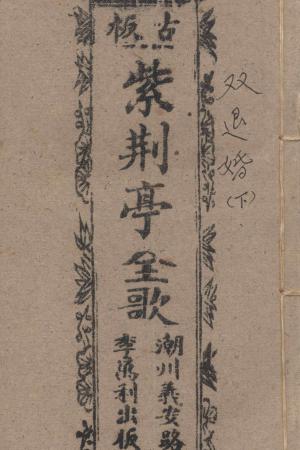 古板
紫荆亭全歌
潮州義安路
李萬利出板
双退婚(下)